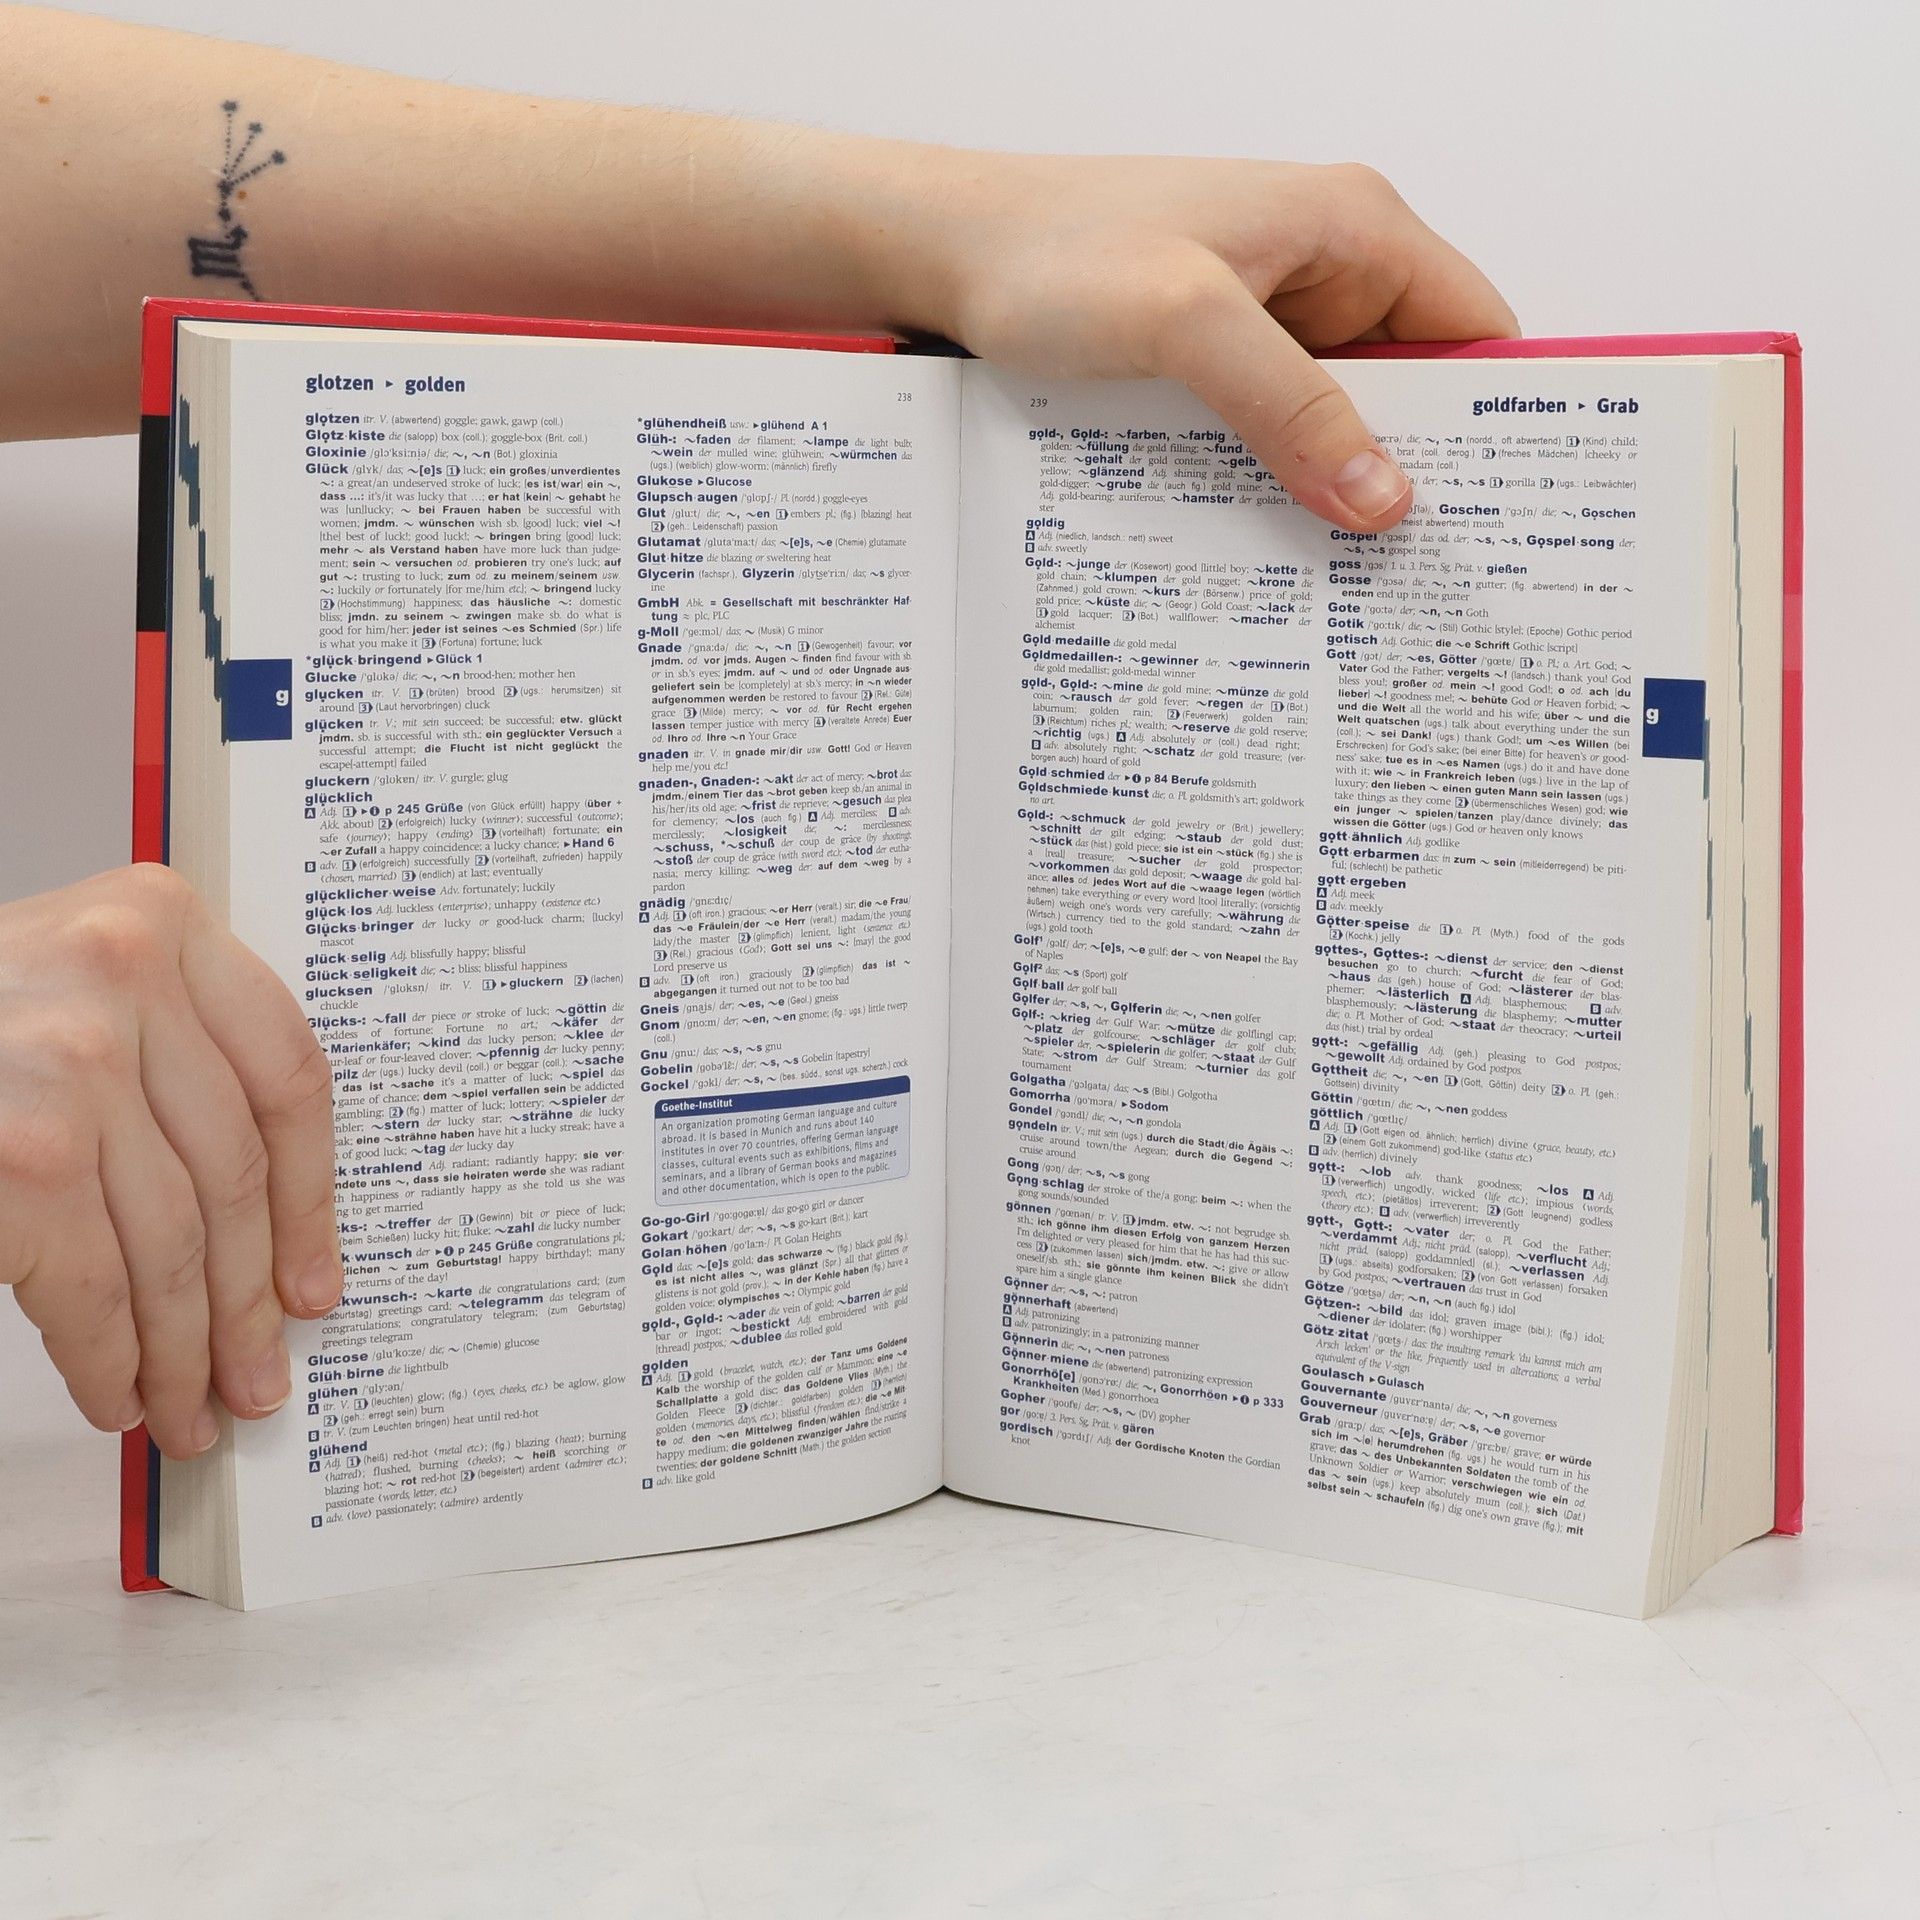 glotzen ▸ golden
238
glotzen itr. V. (abwertend) goggle; gawk, gawp (coll.)
Glotz·kiste die (salopp) box (coll.); goggle-box (Brit. coll.)
Gloxinie /glɔˈksiːni̯ə/ die; ~, ~n (Bot.) gloxinia
Glück /glʏk/ das; ~[e]s 1 luck; ein großes/unverdientes
~: a great/an undeserved stroke of luck; [es ist/war] ein ~,
dass ...: it's/it was lucky that ...; er hat [kein] ~ gehabt he
was [un]lucky; ~ bei Frauen haben be successful with
women; jmdm. ~ wünschen wish sb. [good] luck; viel ~!
[the] best of luck!; good luck!; ~ bringen bring [good] luck;
mehr ~ als Verstand haben have more luck than judge-
ment; sein ~ versuchen od. probieren try one's luck; auf
gut ~: trusting to luck; zum od. zu meinem/seinem usw.
~: luckily or fortunately [for me/him etc]; ~ bringend lucky
2 (Hochstimmung) happiness; das häusliche ~: domestic
bliss; jmdn. zu seinem ~ zwingen make sb. do what is
good for him/her; jeder ist seines ~es Schmied (Spr.) life
is what you make it 3 (Fortuna) fortune; luck
*glück·bringend ▸ Glück 1
Glucke /ˈglʊkə/ die; ~, ~n brood-hen; mother hen
glucken itr. V. 1 (brüten) brood 2 (ugs.: herumsitzen) sit
around 3 (Laut hervorbringen) cluck
glücken tr. V.; mit sein succeed; be successful; etw. glückt
jmdm. sb. is successful with sth.; ein geglückter Versuch a
successful attempt; die Flucht ist nicht geglückt the
escape[-attempt] failed
gluckern /ˈglʊkɐn/ itr. V. gurgle; glug
glücklich
A Adj. 1 ▸ p 245 Grüße (von Glück erfüllt) happy (über +
Akk. about) 2 (erfolgreich) lucky (winner); successful (outcome);
safe (journey); happy (ending) 3 (vorteilhaft) fortunate; ein
~er Zufall a happy coincidence; a lucky chance; ▸ Hand 6
B adv. 1 (erfolgreich) successfully 2 (vorteilhaft, zufrieden) happily
(chosen, married) 3 (endlich) at last; eventually
glücklicher·weise Adv. fortunately; luckily
glück·los Adj. luckless (enterprise); unhappy (existence etc.)
Glücks·bringer der lucky or good-luck charm; [lucky]
mascot
glück·selig Adj. blissfully happy; blissful
Glück·seligkeit die; ~: bliss; blissful happiness
glucksen /ˈglʊksn/ itr. V. 1 ▸ gluckern 2 (lachen)
chuckle
Glücks-: ~fall der piece or stroke of luck; ~göttin die
goddess of fortune; Fortune no art.; ~käfer der
▸ Marienkäfer; ~kind das lucky person; ~klee der
four-leaf or four-leaved clover; ~pfennig der lucky penny;
pilz der (ugs.) lucky devil (coll.) or beggar (coll.); ~sache
das ist ~sache it's a matter of luck; ~spiel das
game of chance; dem ~spiel verfallen sein be addicted
gambling; 2 (fig.) matter of luck; lottery; ~spieler der
~stern der lucky star; ~strähne die lucky
eine ~strähne haben have hit a lucky streak; have a
of good luck; ~tag der lucky day
strahlend Adj. radiant; radiantly happy; sie ver-
uns ~, dass sie heiraten werde she was radiant
happiness or radiantly happy as she told us she was
to get married
~treffer der 1 (Gewinn) bit or piece of luck;
(beim Schießen) lucky hit; fluke; ~zahl die lucky number
wunsch der ▸ p 245 Grüße congratulations pl.;
~ zum Geburtstag! happy birthday!; many
returns of the day!
~karte die congratulations card; (zum
Geburtstag) greetings card; ~telegramm das telegram of
congratulations; congratulatory telegram; (zum Geburtstag)
greetings telegram
Glucose /gluˈkoːzə/ die; ~ (Chemie) glucose
Glüh·birne die lightbulb
glühen /ˈglyːən/
A itr. V. 1 (leuchten) glow; (fig.) (eyes, cheeks, etc.) be aglow, glow
2 (geh.: erregt sein) burn
B tr. V. (zum Leuchten bringen) heat until red-hot
glühend
A Adj. 1 (heiß) red-hot (metal etc.); (fig.) blazing (heat); burning
(hatred); flushed, burning (cheeks); ~ heiß scorching or
blazing hot; ~ rot red-hot 2 (begeistert) ardent (admirer etc.);
passionate (words, letter, etc.)
B adv. (love) passionately; (admire) ardently
*glühendheiß usw. ▸ glühend A 1
Glüh-: ~faden der filament; ~lampe die light bulb;
~wein der mulled wine; glühwein; ~würmchen das
(ugs.) (weiblich) glow-worm; (männlich) firefly
Glukose ▸ Glucose
Glupsch·augen /ˈglʊpʃ-/ Pl. (nordd.) goggle-eyes
Glut /gluːt/ die; ~, ~en 1 embers pl.; (fig.) [blazing] heat
2 (geh.: Leidenschaft) passion
Glutamat /glutaˈmaːt/ das; ~[e]s, ~e (Chemie) glutamate
Glut·hitze die blazing or sweltering heat
Glycerin (fachspr.), Glyzerin /glytseˈriːn/ das; ~s glycer-
ine
GmbH Abk. = Gesellschaft mit beschränkter Haf-
tung ≈ plc, PLC
g-Moll /ˈgeːmɔl/ das; ~ (Musik) G minor
Gnade /ˈgnaːdə/ die; ~, ~n 1 (Gewogenheit) favour; vor
jmdm. od. vor jmds. Augen ~ finden find favour with sb.
or in sb.'s eyes; jmdm. auf ~ und od oder Ungnade aus-
geliefert sein be [completely] at sb.'s mercy; in ~n wieder
aufgenommen werden be restored to favour 2 (Rel.: Güte)
grace 3 (Milde) mercy; ~ vor od. für Recht ergehen
lassen temper justice with mercy 4 (veraltete Anrede) Euer
od. Ihro od. Ihre ~n Your Grace
gnaden itr. V. in gnade mir/dir usw. Gott! God or Heaven
help me/you etc!
gnaden-, Gnaden-: ~akt der act of mercy; ~brot das:
jmdm./einem Tier das ~brot geben keep sb./an animal in
his/her/its old age; ~frist die reprieve; ~gesuch das plea
for clemency; ~los (auch fig.) A Adj. merciless; B adv.
mercilessly; ~losigkeit die; ~: mercilessness;
~schuss, *~schuß der coup de grâce (by shooting)
~stoß der coup de grâce (with sword etc); ~tod der eutha-
nasia; mercy killing; ~weg der: auf dem ~weg by a
pardon
gnädig /ˈgnɛːdɪç/
A Adj. 1 (oft iron.) gracious; ~er Herr (veralt.) sir; die ~e Frau/
das ~e Fräulein/der ~e Herr (veralt.) madam/the young
lady/the master 2 (glimpflich) lenient, light (sentence etc)
3 (Rel.) gracious (God); Gott sei uns ~: [may] the good
Lord preserve us
B adv. 1 (oft iron.) graciously 2 (glimpflich) das ist ~
abgegangen it turned out not to be too bad
Gneis /gnais/ der; ~es, ~e (Geol.) gneiss
Gnom /gnoːm/ der; ~en, ~en gnome; (fig.: ugs.) little twerp
(coll.)
Gnu /gnuː/ das; ~s, ~s gnu
Gobelin /gobəˈlɛ̃ː/ der; ~s, ~s Gobelin [tapestry]
Gockel /ˈgɔkl/ der; ~s, ~ (bes. südd., sonst ugs. scherzh.) cock
Goethe-Institut
An organization promoting German language and culture
abroad. It is based in Munich and runs about 140
institutes in over 70 countries, offering German language
classes, cultural events such as exhibitions, films and
seminars, and a library of German books and magazines
and other documentation, which is open to the public.
Go-go-Girl /ˈgoːgogøːɐ̯l/ das go-go girl or dancer
Gokart /ˈgoːkart/ der; ~s, ~s go-kart (Brit.); kart
Golan·höhen /goˈlaːn-/ Pl. Golan Heights
Gold das; ~[e]s gold; das schwarze ~ (fig.) black gold (fig.);
es ist nicht alles ~, was glänzt (Spr.) all that glitters or
glistens is not gold (prov.); ~ in der Kehle haben (fig.) have a
golden voice; olympisches ~: Olympic gold
gold-, Gold-: ~ader die vein of gold; ~barren der gold
bar or ingot; ~bestickt Adj. embroidered with gold
[thread] postpos.; ~dublee das rolled gold
golden
A Adj. 1 gold (bracelet, watch, etc.); der Tanz ums Goldene
Kalb the worship of the golden calf or Mammon; eine ~e
Schallplatte a gold disc; das Goldene Vlies (Myth.) the
Golden Fleece 2 (dichter.: goldfarben) golden 1 (herrlich)
golden (memories, days, etc.); blissful (freedom etc.); die ~e Mit-
te od. den ~en Mittelweg finden/wählen find/strike a
happy medium; die goldenen zwanziger Jahre the roaring
twenties; der goldene Schnitt (Math.) the golden section
B adv. like gold
239
goldfarben ▸ Grab
gold-, Gold-: ~farben, ~farbig
golden; ~füllung die gold filling; ~fund
strike; ~gehalt der gold content; ~gelb
yellow; ~glänzend Adj. shining gold;
gold-digger; ~grube die (auch fig.) gold mine;
Adj. gold-bearing; auriferous; ~hamster der golden
ster
goldig
A Adj. (niedlich, landsch.: nett) sweet
B adv. sweetly
Gold-: ~junge der (Kosewort) good [little] boy; ~kette die
gold chain; ~klumpen der gold nugget; ~krone die
(Zahnmed.) gold crown; ~kurs der (Börsenw.) price of gold;
gold price; ~küste die; ~ (Geogr.) Gold Coast; ~lack der
1 gold lacquer; 2 (Bot.) wallflower; ~macher der
alchemist
Gold·medaille die gold medal
Goldmedaillen-: ~gewinner der, ~gewinnerin
die gold medallist; gold-medal winner
gold-, Gold-: ~mine die gold mine; ~münze die gold
coin; ~rausch der gold fever; ~regen der 1 (Bot.)
laburnum; golden rain; 2 (Feuerwerk) golden rain;
3 (Reichtum) riches pl.; wealth; ~reserve die gold reserve;
~richtig (ugs.) A Adj. absolutely or (coll.) dead right;
B adv. absolutely right; ~schatz der gold treasure; (ver-
borgen auch) hoard of gold
Gold·schmied der ▸ p 84 Berufe goldsmith
Goldschmiede·kunst die; o. Pl. goldsmith's art; goldwork
no art.
Gold-: ~schmuck der gold jewelry or (Brit.) jewellery;
~schnitt der gilt edging; ~staub der gold dust;
~stück das (hist.) gold piece; sie ist ein ~stück (fig.) she is
a [real] treasure; ~sucher der gold prospector;
~vorkommen das gold deposit; ~waage die gold bal-
ance; alles od. jedes Wort auf die ~waage legen (wörtlich
nehmen) take everything or every word [too] literally; (vorsichtig
äußern) weigh one's words very carefully; ~währung die
(Wirtsch.) currency tied to the gold standard; ~zahn der
(ugs.) gold tooth
Golf¹ /gɔlf/ der; ~[e]s, ~e gulf; der ~ von Neapel the Bay
of Naples
Golf² das; ~s (Sport) golf
Golf·ball der golf ball
Golfer der; ~s, ~, Golferin die; ~, ~nen golfer
Golf-: ~krieg der Gulf War; ~mütze die golf[ing] cap;
~platz der golfcourse; ~schläger der golf club;
~spieler der, ~spielerin die golfer; ~staat der Gulf
State; ~strom der Gulf Stream; ~turnier das golf
tournament
Golgatha /ˈgɔlgata/ das; ~s (Bibl.) Golgotha
Gomorrha /goˈmɔra/ ▸ Sodom
Gondel /ˈgɔndl/ die; ~, ~n gondola
gondeln itr. V.; mit sein (ugs.) durch die Stadt/die Ägäis ~:
cruise around town/the Aegean; durch die Gegend ~:
cruise around
Gong /gɔŋ/ der; ~s, ~s gong
Gong·schlag der stroke of the/a gong; beim ~: when the
gong sounds/sounded
gönnen /ˈgœnən/ tr. V. 1 jmdm. etw. ~: not begrudge sb.
sth.; ich gönne ihm diesen Erfolg von ganzem Herzen
I'm delighted or very pleased for him that he has had this suc-
cess 2 (zukommen lassen) sich/jmdm. etw. ~: give or allow
oneself/sb. sth.; sie gönnte ihm keinen Blick she didn't
spare him a single glance
Gönner der; ~s, ~: patron
gönnerhaft (abwertend)
A Adj. patronizing
B adv. patronizingly; in a patronizing manner
Gönnerin die; ~, ~nen patroness
Gönner·miene die (abwertend) patronizing expression
Gonorrhö[e] /gonɔˈrøː/ die; ~, Gonorrhöen ▸ p 333
Krankheiten (Med.) gonorrhoea
Gopher /ˈgoufɐ/ der; ~s, ~s (DV) gopher
gor /goːɐ̯/ 3. Pers. Sg. Prät. v. gären
gordisch /ˈgɔrdɪʃ/ Adj. der Gordische Knoten the Gordian
knot
die; ~, ~n (nordd., oft abwertend) 1 (Kind) child;
brat (coll. derog.) 2 (freches Mädchen) [cheeky or
madam (coll.)
der; ~s, ~s 1 gorilla 2 (ugs.: Leibwächter)
Goschen /ˈgɔʃn/ die; ~, Goschen
meist abwertend) mouth
Gospel /ˈgɔspl/ das od. der; ~s, ~s, Gospel·song der;
~s, ~s gospel song
goss /gɔs/ 1. u. 3. Pers. Sg. Prät. v. gießen
Gosse /ˈgɔsə/ die; ~, ~n gutter; (fig. abwertend) in der ~
enden end up in the gutter
Gote /ˈgoːtə/ der; ~n, ~n Goth
Gotik /ˈgoːtɪk/ die; ~ (Stil) Gothic [style]; (Epoche) Gothic period
gotisch Adj. Gothic; die ~e Schrift Gothic [script]
Gott /gɔt/ der; ~es, Götter /ˈgœtɐ/ 1 o. Pl.; o. Art. God; ~
Vater God the Father; vergelts ~! (landsch.) thank you! God
bless you!; großer od. mein ~! good God!; o od. ach [du
lieber] ~! goodness me!; ~ behüte God or Heaven forbid; ~
und die Welt all the world and his wife; über ~ und die
Welt quatschen (ugs.) talk about everything under the sun
(coll.); ~ sei Dank! (ugs.) thank God!; um ~es Willen (bei
Erschrecken) for God's sake; (bei einer Bitte) for heaven's or good-
ness' sake; tue es in ~es Namen (ugs.) do it and have done
with it; wie ~ in Frankreich leben (ugs.) live in the lap of
luxury; den lieben ~ einen guten Mann sein lassen (ugs.)
take things as they come 2 (übermenschliches Wesen) god; wie
ein junger ~ spielen/tanzen play/dance divinely; das
wissen die Götter (ugs.) God or heaven only knows
gott·ähnlich Adj. godlike
Gott·erbarmen das: in zum ~ sein (mitleiderregend) be piti-
ful; (schlecht) be pathetic
gott·ergeben
A Adj. meek
B adv. meekly
Götter·speise die 1 o. Pl. (Myth.) food of the gods
2 (Kochk.) jelly
gottes-, Gottes-: ~dienst der service; den ~dienst
besuchen go to church; ~furcht die fear of God;
~haus das (geh.) house of God; ~lästerer der blas-
phemer; ~lästerlich A Adj. blasphemous; B adv.
blasphemously; ~lästerung die blasphemy; ~mutter
die; o. Pl. Mother of God; ~staat der theocracy; ~urteil
das (hist.) trial by ordeal
gott-: ~gefällig Adj. (geh.) pleasing to God postpos.;
~gewollt Adj. ordained by God postpos.
Gottheit die; ~, ~en 1 (Gott, Göttin) deity 2 o. Pl. (geh.:
Gottsein) divinity
Göttin /ˈgœtɪn/ die; ~, ~nen goddess
göttlich /ˈgœtlɪç/
A Adj. 1 (Gott eigen od. ähnlich; herrlich) divine (grace, beauty, etc.)
2 (einem Gott zukommend) god-like (status etc.)
B adv. (herrlich) divinely
gott-: ~lob adv. thank goodness; ~los A Adj.
1 (verwerflich) ungodly, wicked (life etc.); impious (words,
speech, etc.); (pietätlos) irreverent; 2 (Gott leugnend) godless
(theory etc.); B adv. (verwerflich) irreverently
gott-, Gott-: ~vater der; o. Pl. God the Father;
~verdammt Adj.; nicht präd. (salopp), ~verflucht Adj.;
nicht präd. (salopp) goddamn[ed] (sl.); ~verlassen Adj.
1 (ugs.: abseits) godforsaken; 2 (von Gott verlassen) forsaken
by God postpos.; ~vertrauen das trust in God
Götze /ˈgœtsə/ der; ~n, ~n (auch fig.) idol
Götzen-: ~bild das idol; graven image (bibl.); (fig.) idol;
~diener der idolater; (fig.) worshipper
Götz·zitat /ˈgœts-/ das: the insulting remark 'du kannst mich am
Arsch lecken' or the like, frequently used in altercations; a verbal
equivalent of the V-sign
Goulasch ▸ Gulasch
Gouvernante /guvɛrˈnantə/ die; ~, ~n governess
Gouverneur /guvɛrˈnøːɐ̯/ der; ~s, ~e governor
Grab /graːp/ das; ~[e]s, Gräber /ˈgrɛːbɐ/ grave; er würde
sich im ~[e] herumdrehen (fig. ugs.) he would turn in his
grave; das ~ des Unbekannten Soldaten the tomb of the
Unknown Soldier or Warrior; verschwiegen wie ein od.
das ~ sein (ugs.) keep absolutely mum (coll.); sich (Dat.)
selbst sein ~ schaufeln (fig.) dig one's own grave (fig.); mit
g
g